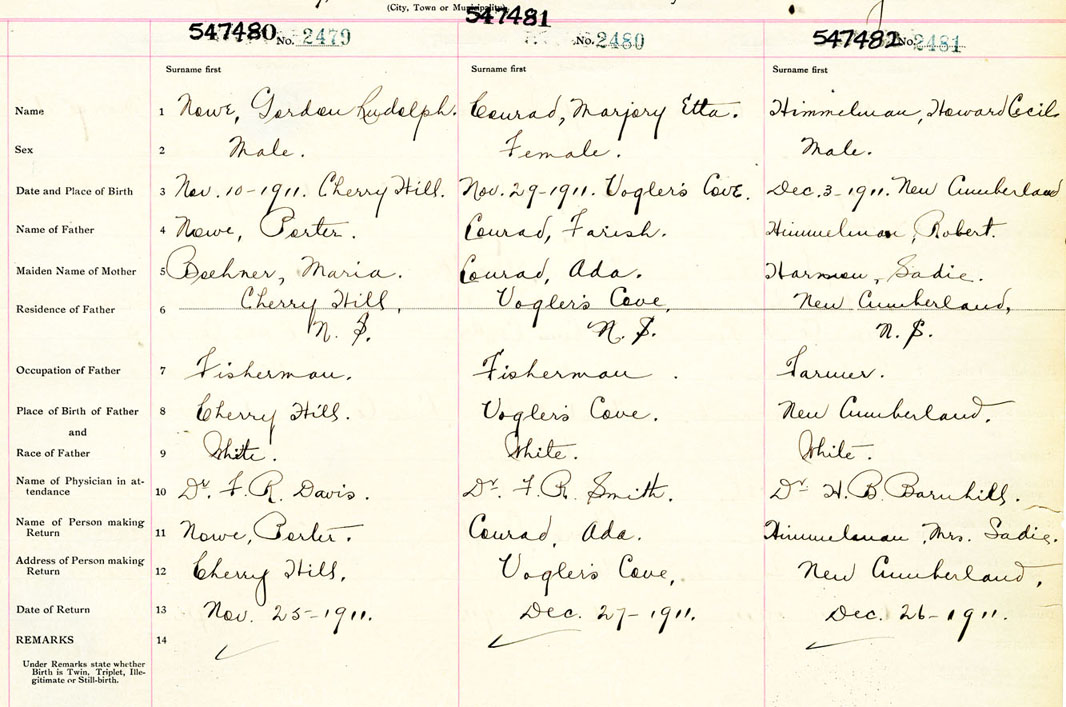 (City, Town or Municipality)
547480 No. 2479 547481 No. 2480 547482 No. 2481
Surname first Surname first Surname first
Name 1 Nowe, Gordon Rudolph. Conrad, Marjory Etta. Himmelman, Howard Cecil.
Sex 2 Male. Female. Male.
Date and Place of Birth 3 Nov. 10-1911. Cherry Hill. Nov. 29-1911. Vogler's Cove. Dec. 3-1911. New Cumberland
Name of Father 4 Nowe, Porter. Conrad, Farish. Himmelman, Robert.
Maiden Name of Mother 5 Boehner, Maria. Conrad, Ada. Sadie.
Residence of Father 6 Cherry Hill, Vogler's Cove, New Cumberland,
N. S. N. S. N. S.
Occupation of Father 7 Fisherman. Fisherman. Farmer.
Place of Birth of Father 8 Cherry Hill. Vogler's Cove. New Cumberland.
and
Race of Father 9 White. White. White.
Name of Physician in at-
tendance 10 Dr. F. R. Davis. Dr. F. R. Smith. Dr. H. B. Barnhill.
Name of Person making
Return 11 Nowe, Porter. Conrad, Ada. Himmelman, Mrs. Sadie.
Address of Person making
Return 12 Cherry Hill. Vogler's Cove, New Cumberland,
Date of Return 13 Nov. 25-1911. Dec. 27-1911. Dec. 26-1911.
REMARKS 14
Under Remarks state whether
Birth is Twin, Triplet, Ille-
gitimate or Still-birth.